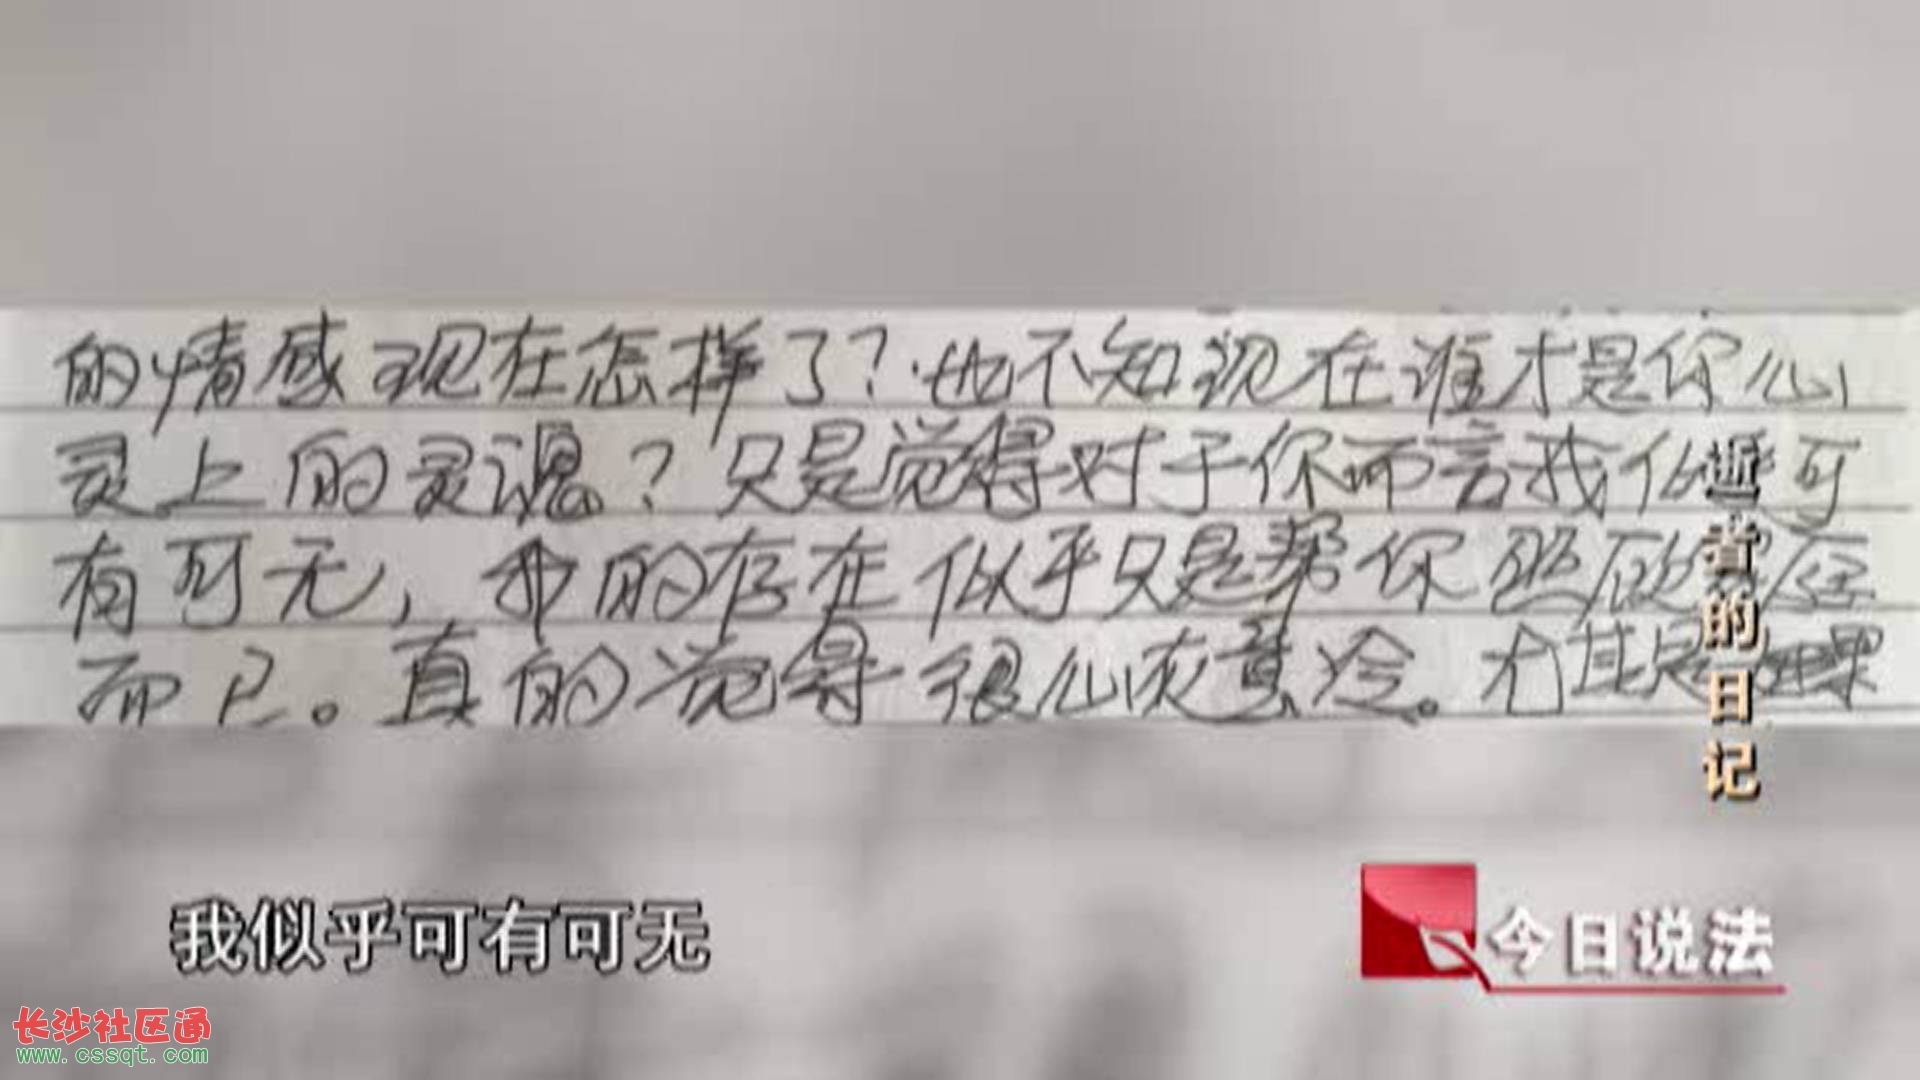 的情感现在怎样了?也不知现在谁才是你心
灵上的灵魂?只是觉得对于你而言我似乎可
有可无,我的存在似乎只是帮你照顾家庭
而已。真的觉得很心灰意冷。尤其是
逝者的日记
我似乎可有可无
今日说法
长沙社区通
www.cssqt.com